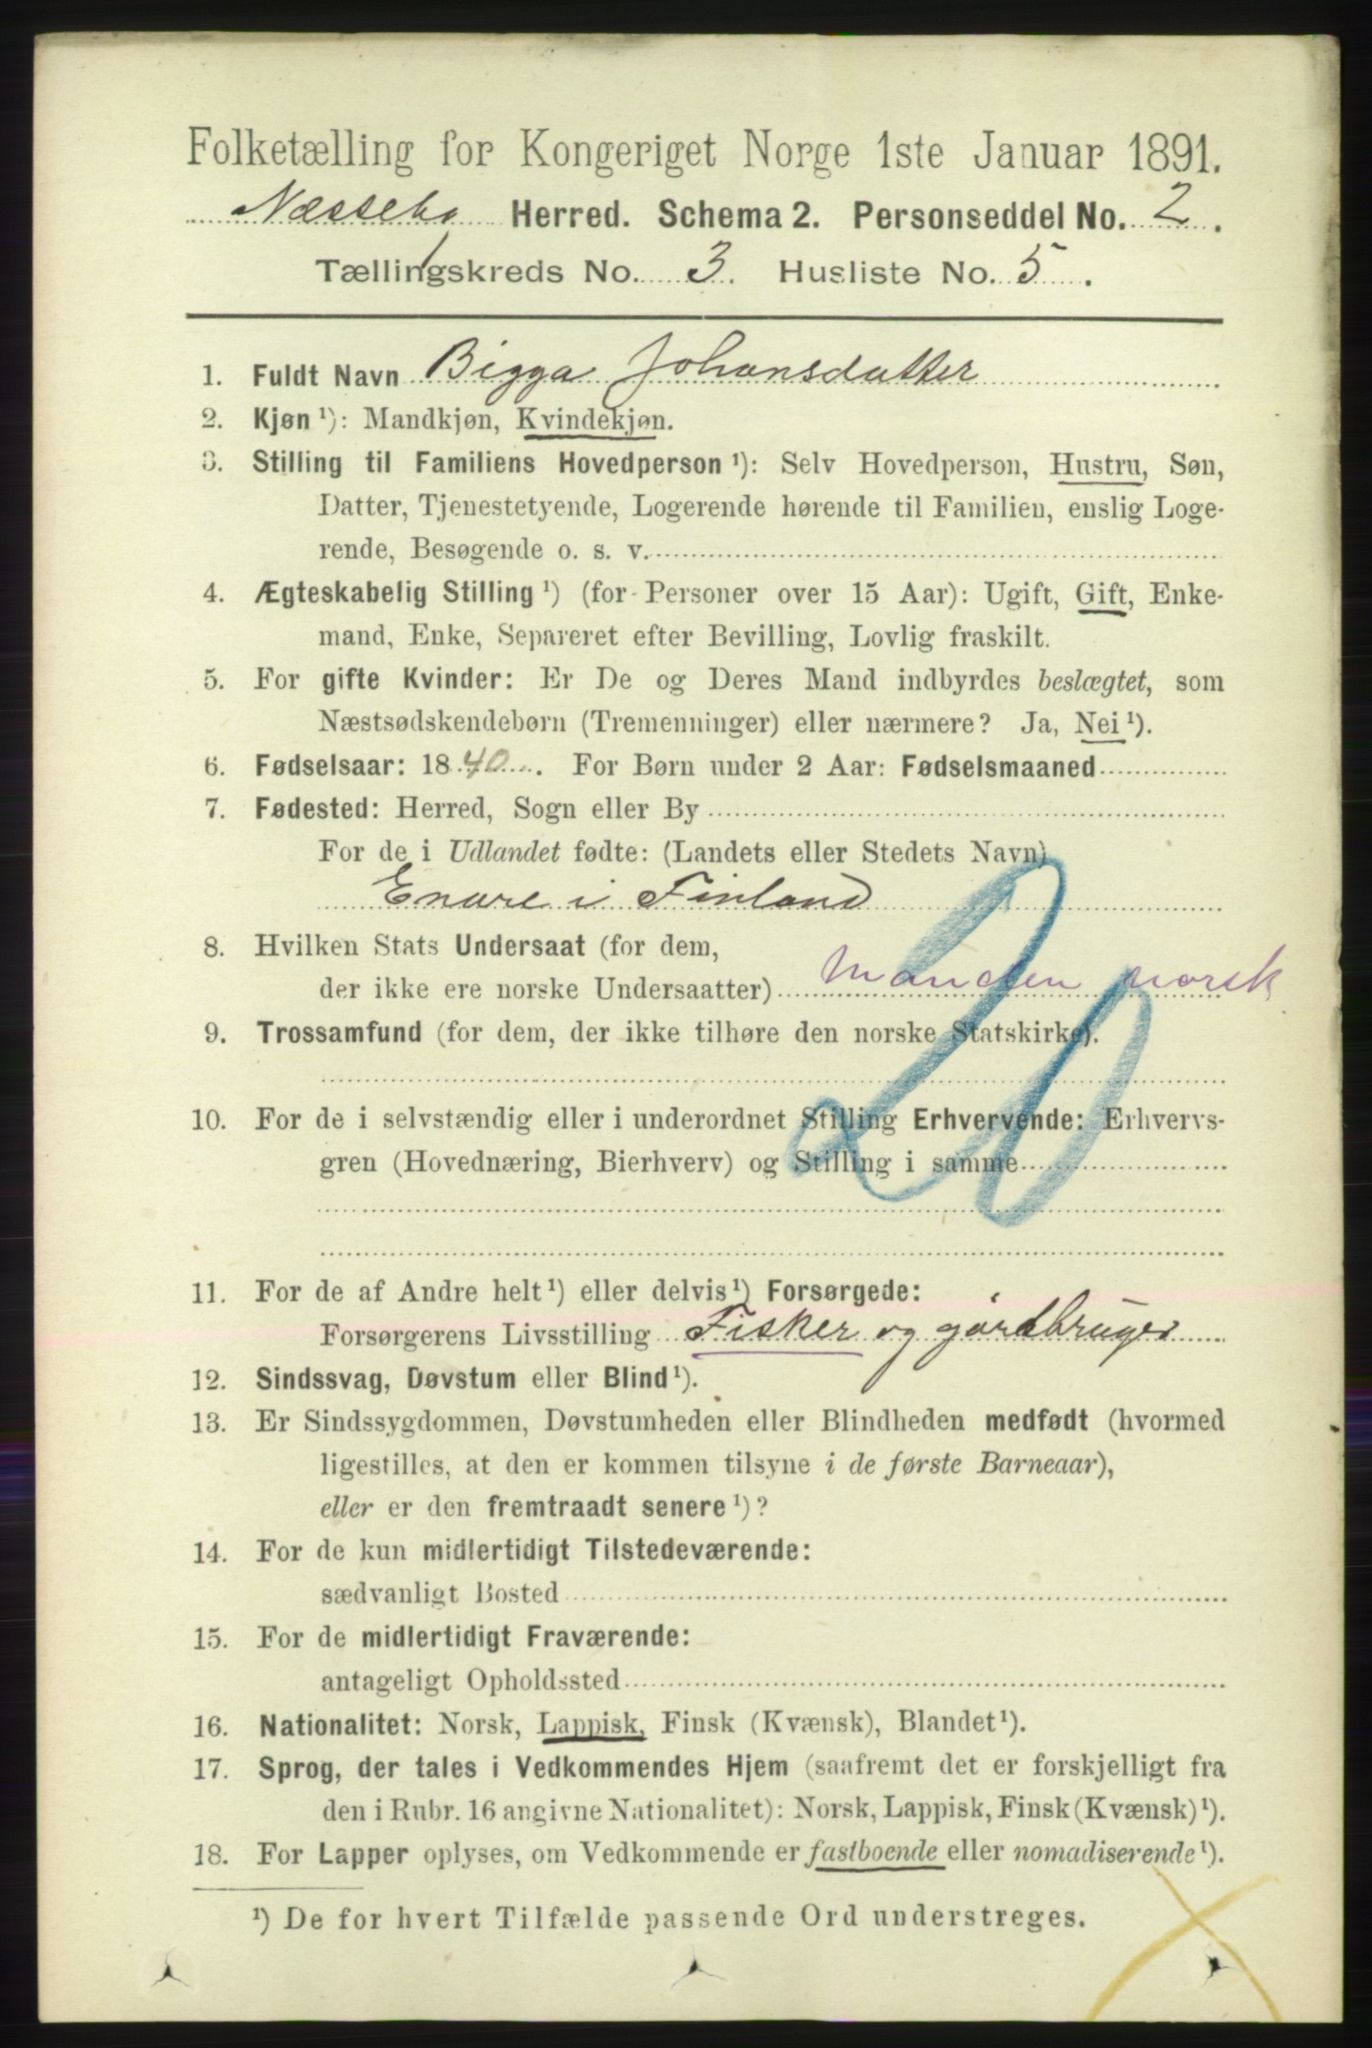 Folketælling for Kongeriget Norge 1ste Januar 1891.
Næsseby Herred. Schema 2. Personseddel No. 2.
Tællingskreds No. 3. Husliste No. 5.
1. Fuldt Navn Bigga Johansdatter
2. Kjøn ¹): Mandkjøn, Kvindekjøn.
3. Stilling til Familiens Hovedperson ¹): Selv Hovedperson, Hustru, Søn,
Datter, Tjenestetyende, Logerende hørende til Familien, enslig Loge-
rende, Besøgende o. s. v.
4. Ægteskabelig Stilling ¹) (for Personer over 15 Aar): Ugift, Gift, Enke-
mand, Enke, Separeret efter Bevilling, Lovlig fraskilt.
5. For gifte Kvinder: Er De og Deres Mand indbyrdes beslægtet, som
Næstsødskendebørn (Tremenninger) eller nærmere? Ja, Nei ¹).
6. Fødselsaar: 1840. For Børn under 2 Aar: Fødselsmaaned
7. Fødested: Herred, Sogn eller By
For de i Udlandet fødte: (Landets eller Stedets Navn)
Enare i Finland
8. Hvilken Stats Undersaat (for dem,
der ikke ere norske Undersaatter) Manden norsk
9. Trossamfund (for dem, der ikke tilhøre den norske Statskirke).
20
10. For de i selvstændig eller i underordnet Stilling Erhvervende: Erhvervs-
gren (Hovednæring, Bierhverv) og Stilling i samme
11. For de af Andre helt ¹) eller delvis ¹) Forsørgede:
Forsørgerens Livsstilling Fisker og gårdbruger
12. Sindssvag, Døvstum eller Blind ¹).
13. Er Sindssygdommen, Døvstumheden eller Blindheden medfødt (hvormed
ligestilles, at den er kommen tilsyne i de første Barneaar),
eller er den fremtraadt senere ¹)?
14. For de kun midlertidigt Tilstedeværende:
sædvanligt Bosted
15. For de midlertidigt Fraværende:
antageligt Opholdssted
16. Nationalitet: Norsk, Lappisk, Finsk (Kvænsk), Blandet ¹).
17. Sprog, der tales i Vedkommendes Hjem (saafremt det er forskjelligt fra
den i Rubr. 16 angivne Nationalitet): Norsk, Lappisk, Finsk (Kvænsk) ¹).
18. For Lapper oplyses, om Vedkommende er fastboende eller nomadiserende ¹).
¹) De for hvert Tilfælde passende Ord understreges.